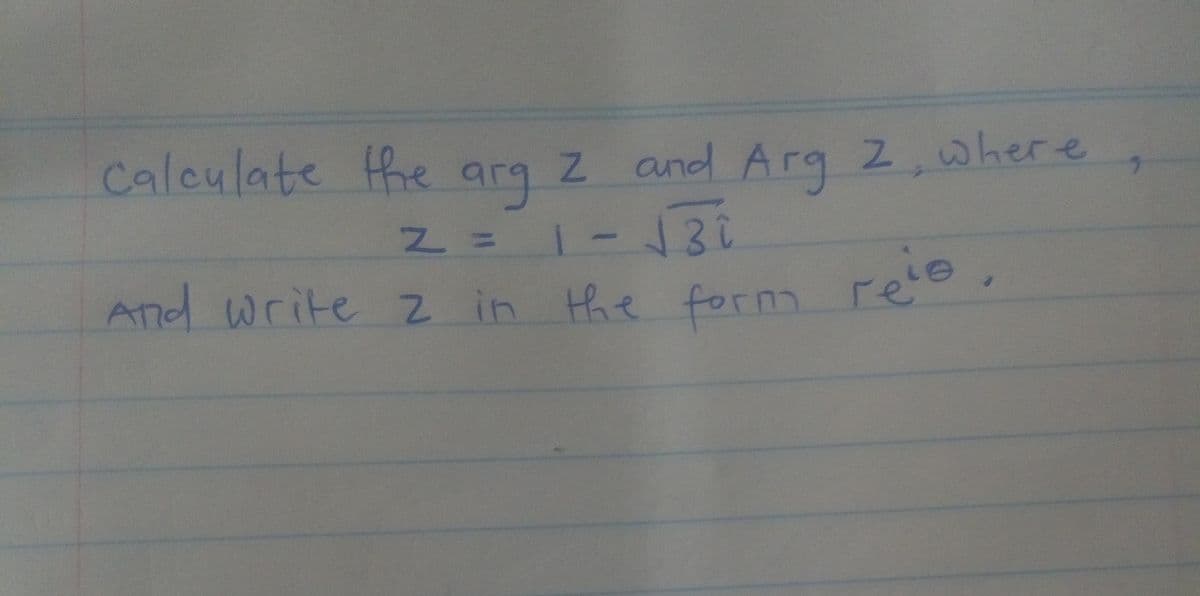 Calculate the arg z and Arg z, where,
z = 1 - √3i
And write z in the form re^iθ.